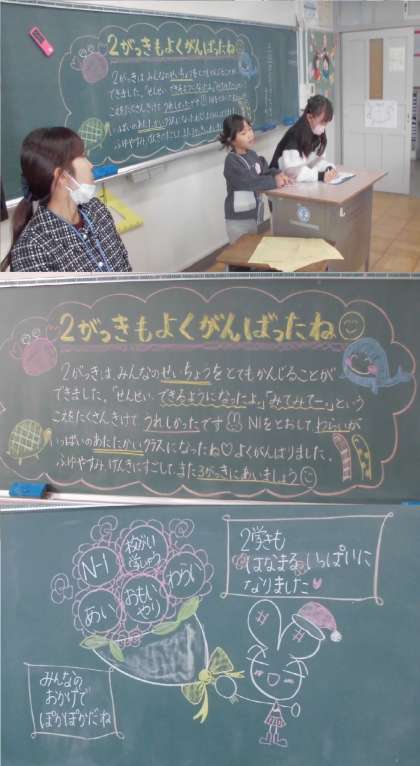 2がっきもよくがんばったね
2がっきは、みんなのせいちょうをとてもかんじることが
できました。「せんせい、できるようになったよ。」「みてみてー。」という
こえをたくさんきけて うれしかったです!! N1をとおして わらいが
いっぱいの あたたかいクラスになったね♡ よくがんばりました。
ふゆやすみ、げんきにすごし、また3がっきにあいましょう
2がっきもよくがんばったね
2がっきは、みんなのせいちょうをとてもかんじることが
できました。「せんせい、できるようになったよ。」「みてみてー。」という
こえをたくさんきけて うれしかったです!! N1をとおして わらいが
いっぱいの あたたかいクラスになったね♡ よくがんばりました。
ふゆやすみ、げんきにすごし、また3がっきにあいましょう
N-1
わらい
あい
おもい
やり
2学きも
はなまるいっぱいに
なりました♥
みんなの
おかげで
ぽかぽかだね